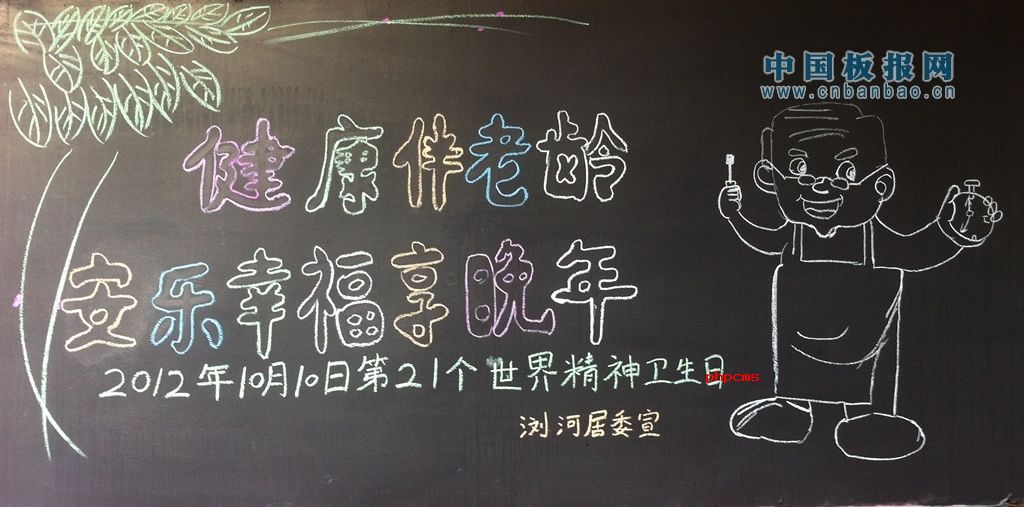 中国板报网
www.cnbanbao.cn
健康伴老龄
安乐幸福享晚年
2012年10月10日第21个世界精神卫生日
phpcms
浏河居委宣